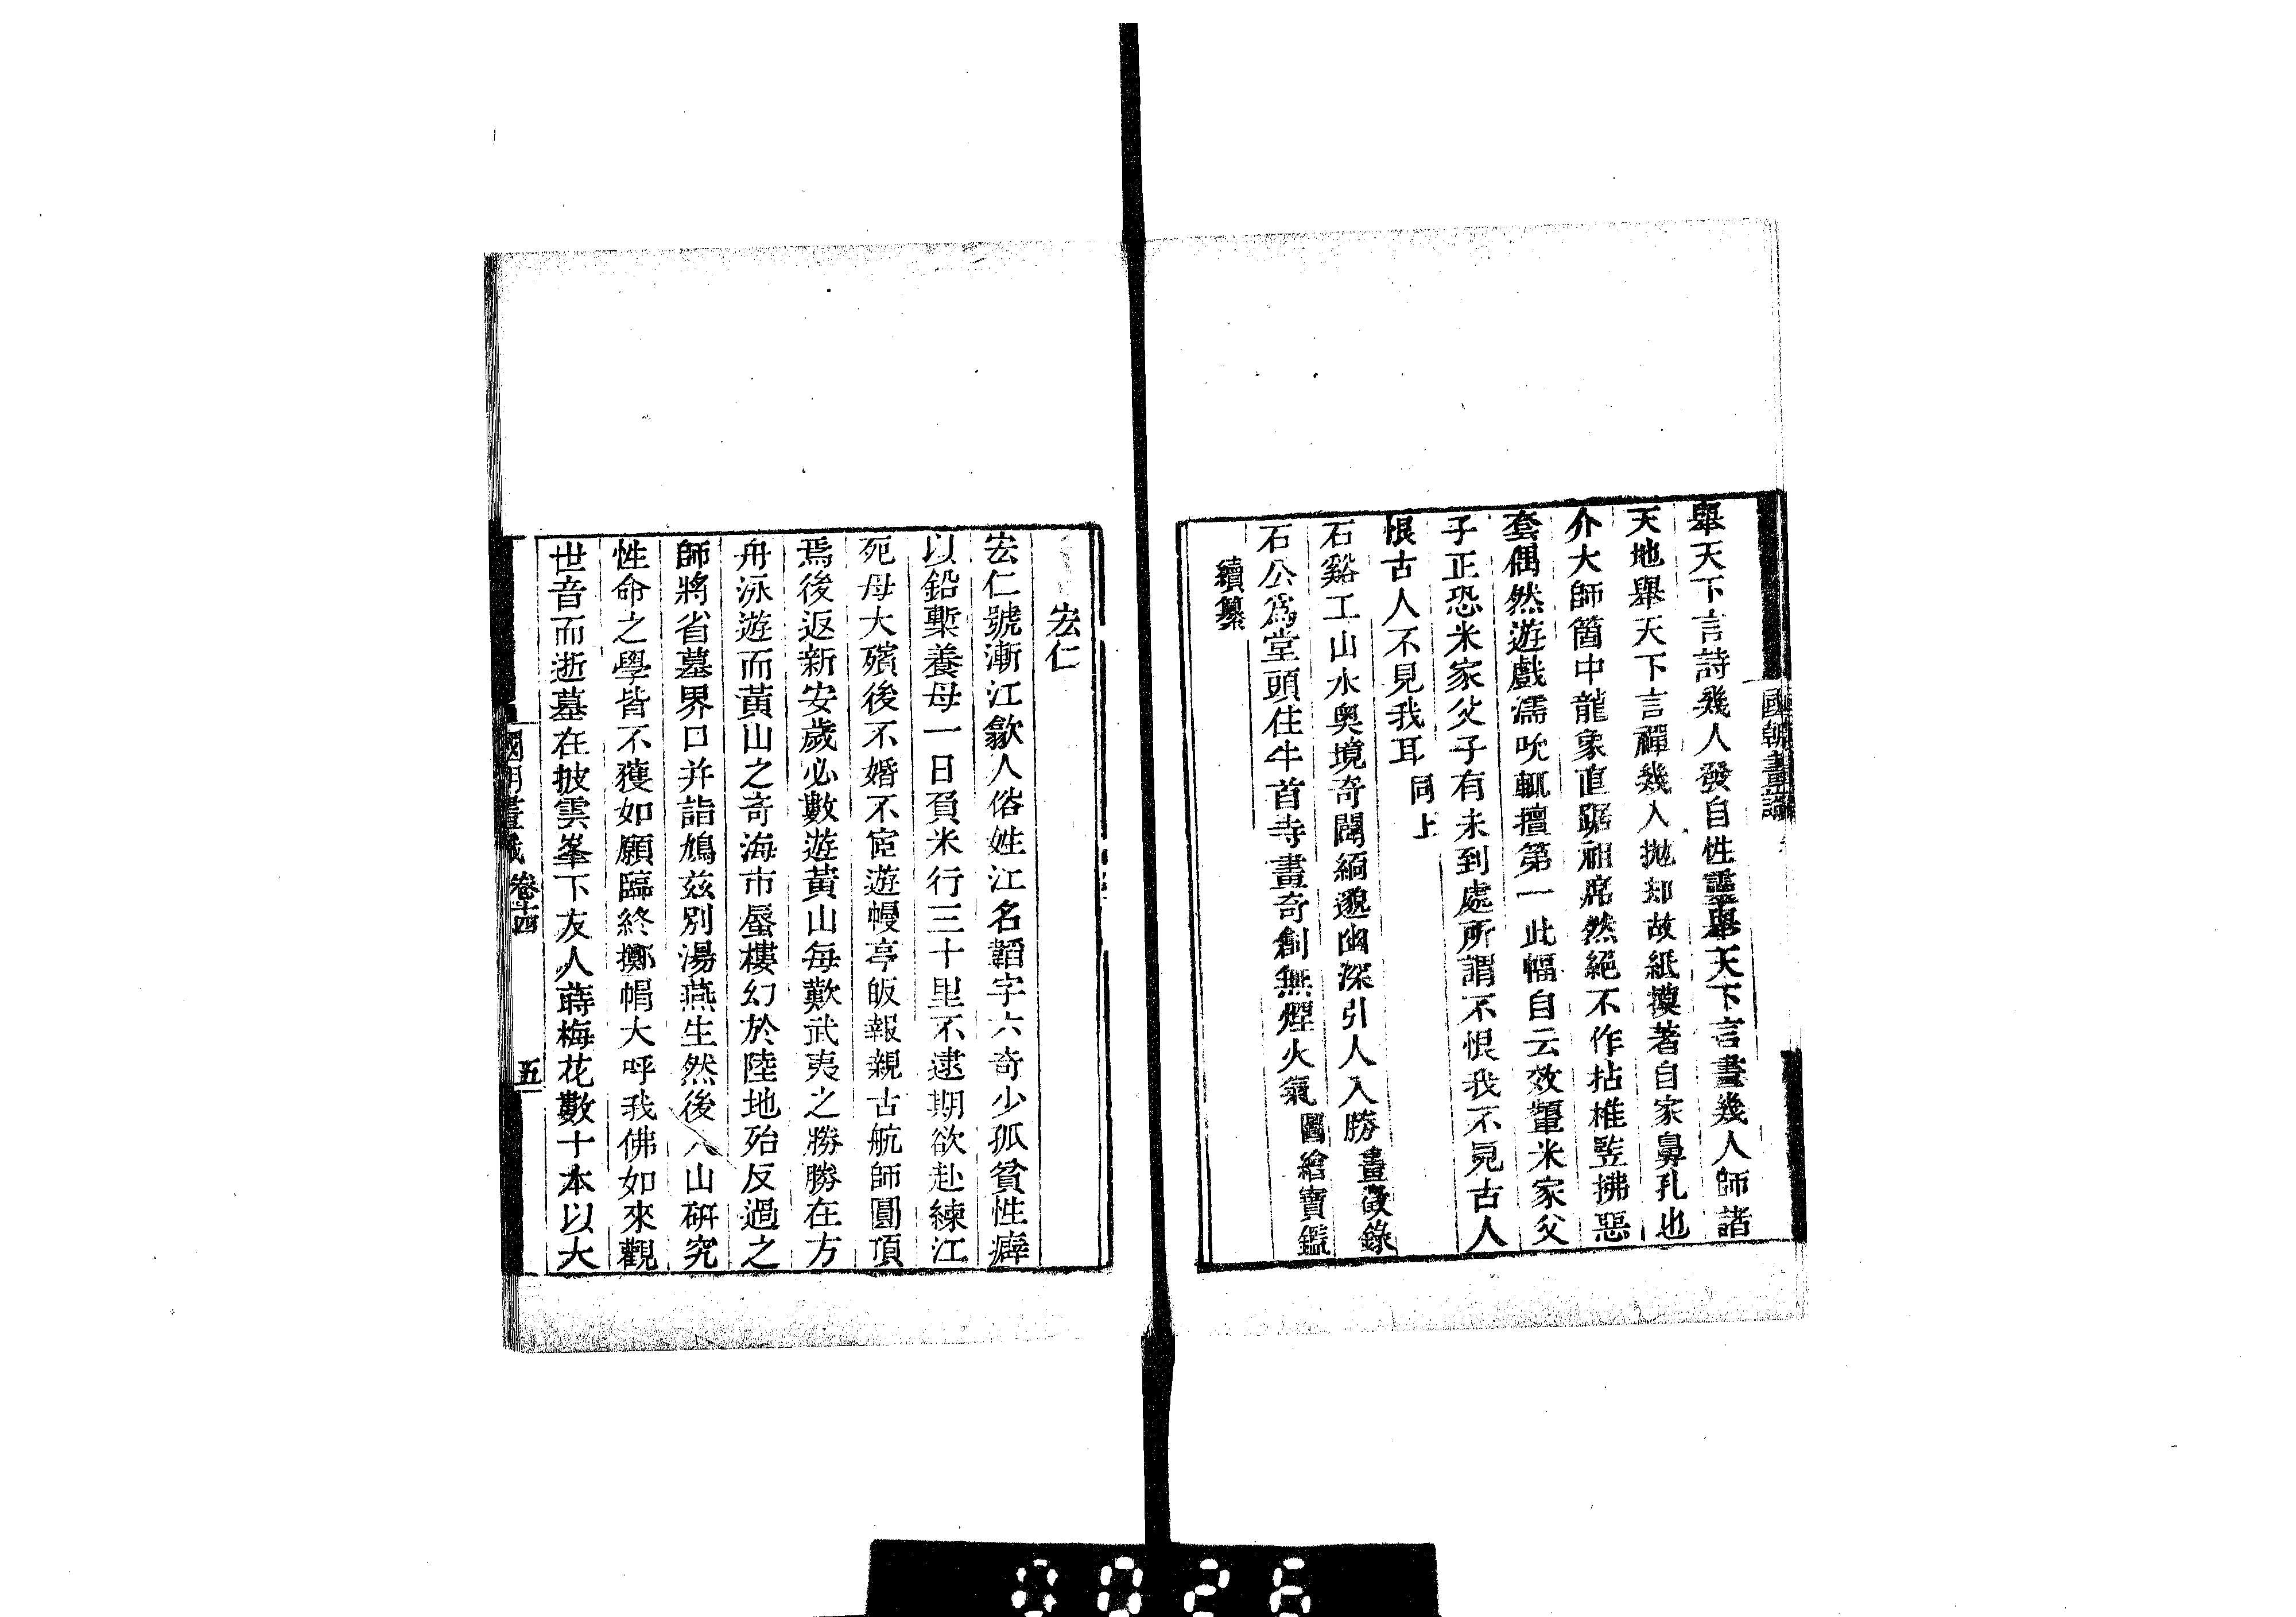 國朝畫識
舉天下言詩幾人發自性靈舉天下言畫幾人師諸
天地舉天下言禪幾人拋却故紙摸著自家鼻孔也
介大師箇中龍象直踞祖席然絕不作拈椎竪拂惡
套偶然遊戲濡吮輒擅第一此幅自云效顰米家父
子正恐米家父子有未到處所謂不恨我不見古人
恨古人不見我耳 同上
石谿工山水奥境奇闢緬邈幽深引人入勝 畫徵錄
石公爲堂頭住牛首寺畫奇創無煙火氣 圖繪寶鑑
續纂
宏仁
宏仁號漸江歙人俗姓江名韜字六奇少孤貧性癖
以鉛槧養母一日負米行三十里不逮期欲赴練江
死母大殯後不婚不宦遊幔亭皈報親古航師圓頂
焉後返新安歲必數遊黃山每歎武夷之勝勝在方
舟泳遊而黃山之奇海市蜃樓幻於陸地殆反過之
師將省墓界口并詣鳩茲別湯燕生然後入山研究
性命之學皆不獲如願臨終擲帽大呼我佛如來觀
世音而逝墓在披雲峯下友人蒔梅花數十本以大
國朝畫識 卷十四 五
0026